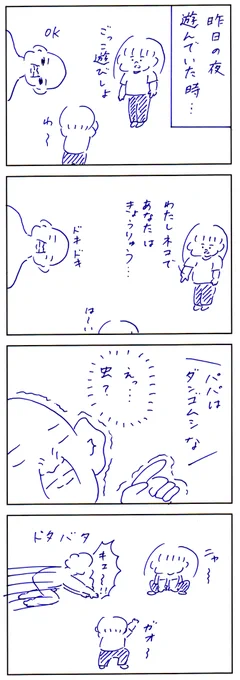 昨日の夜
遊んでいた時…
ごっこ遊びしよ
OK
わ〜
わたしネコで
あなたは
きょうりゅう…
ドキドキ
はーい
パパは
ダンゴムシな
えっ…
虫?
ニャ〜
キェ〜!!
ドタバタ
ガオ〜